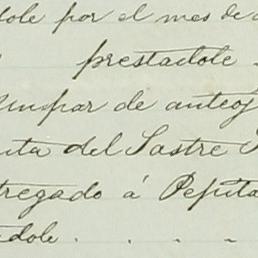 dole por el mes de
prestadole
Un par de anteoj
uta del Sastre
tregado á Pepita
dole . . . .